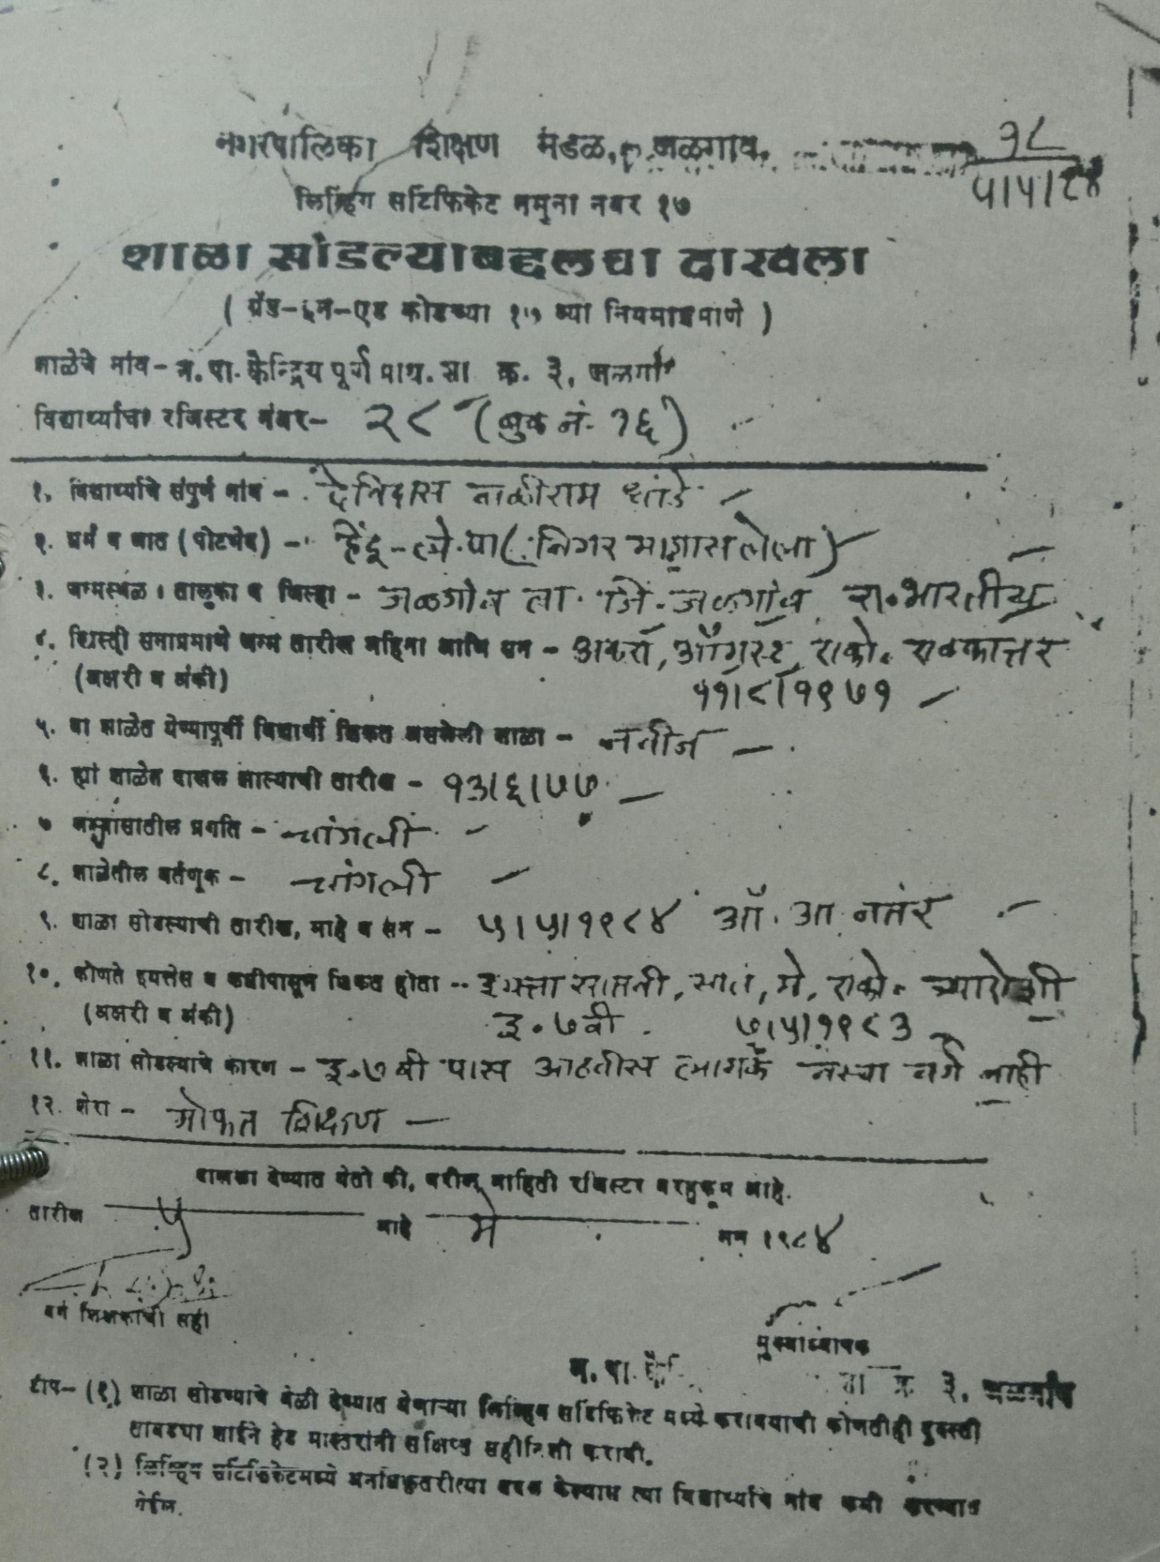 नगरपालिका शिक्षण मंडळ, जळगाव.
१८
५।५।८४
लिव्हिंग सर्टिफिकेट नमुना नंबर १७
शाळा सोडल्याबद्दलचा दाखला
( ग्रँट-इन-एड कोडच्या १७ व्या नियमाप्रमाणे )
शाळेचे नांव - न. पा. केन्द्रिय पूर्ण प्राथ. शा क्र. ३, जळगाँ
विद्यार्थ्याचा रजिस्टर नंबर- २८ (बुक नं. १६)
१. विद्यार्थ्याचे संपुर्ण नांव - देविदास बळीराम
२. धर्म व जात (पोटभेद) - हिंदू - ले. पा (
३. जन्मस्थळ । तालुका व जिल्हा - जळगांव ता. जि. जळगांव रा. भारतीय
४. ख्रिस्ती सनाप्रमाणे जन्म तारीख महिना आणि सन - अकरा, ऑगस्ट, एको. एकाहत्तर
(अक्षरी व अंकी) ११।८।१९७१
५. या शाळेत येण्यापूर्वी विद्यार्थी शिकत असलेली शाळा - नवीन
६. ह्या शाळेत दाखल झाल्याची तारीख - १३।६।७७
७ अभ्यासातील प्रगति - चांगली
८. शाळेतील वर्तणूक - चांगली
९. शाळा सोडल्याची तारीख, माहे व सन - ५।५।१९८४ ऑ. आ. नतंर
१०. कोणते इयत्तेस व कधीपासून शिकत होता - इयत्ता सातवी, सात, मे, एको. त्र्याऐंशी
(अक्षरी व अंकी) इ. ७ वी. ७।५।१९८३
११. शाळा सोडल्याचे कारण - इ. ७ वी पास आठवीस लागके वर्ग नाही
१२. शेरा - मोफत शिक्षण
दाखला देण्यात येतो की, वरील माहिती रजिस्टर बरहुकूम आहे.
तारीख ५ माहे मे सन १९८४
वर्ग शिक्षकाची सही
मुख्याध्यापक
न. पा. के शा क्र ३, जळगांव
टीप- (१) शाळा सोडण्याचे वेळी देण्यात येणाऱ्या लिव्हिंग सर्टिफिकेट मध्ये करावयाची कोणतीही दुरुस्ती
तांबड्या शाईने हेड मास्तरांनी संक्षिप्त सहीनिशी करावी.
(२) लिव्हिंग सर्टिफिकेटमध्ये अनधिकृतरीत्या बदल केल्यास त्या विद्यार्थ्याचे नांव कमी करण्यात
येईल.